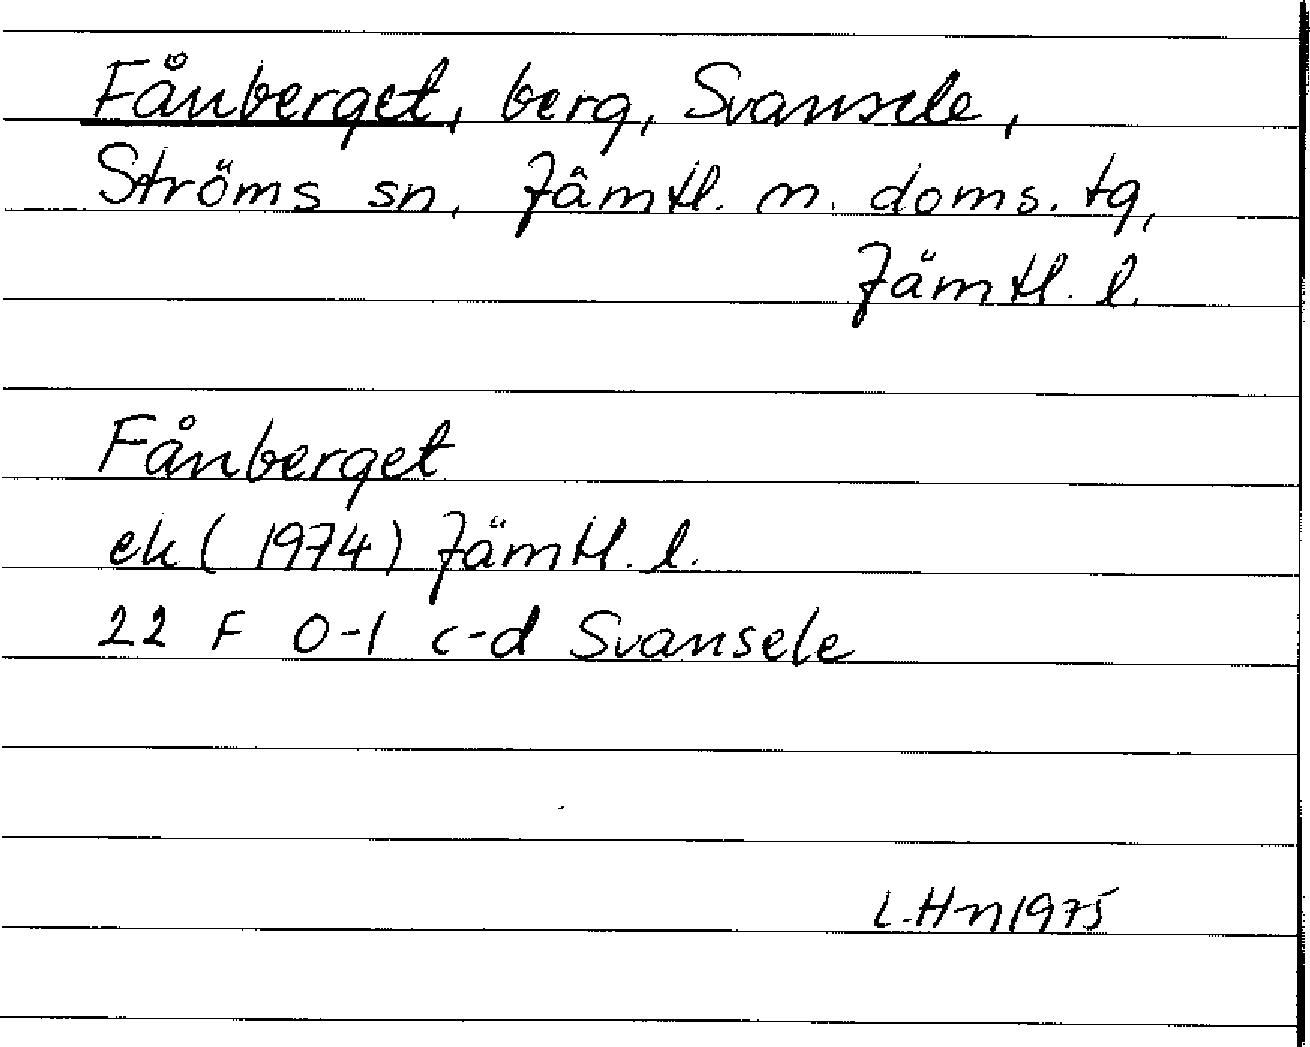 Fånberget, berg, Svansele,
Ströms sn, Jämtl. n. doms. tg,
Jämtl. l.
Fånberget
ek (1974) Jämtl. l.
22 F 0-1 c-d Svansele
L.Hn 1975